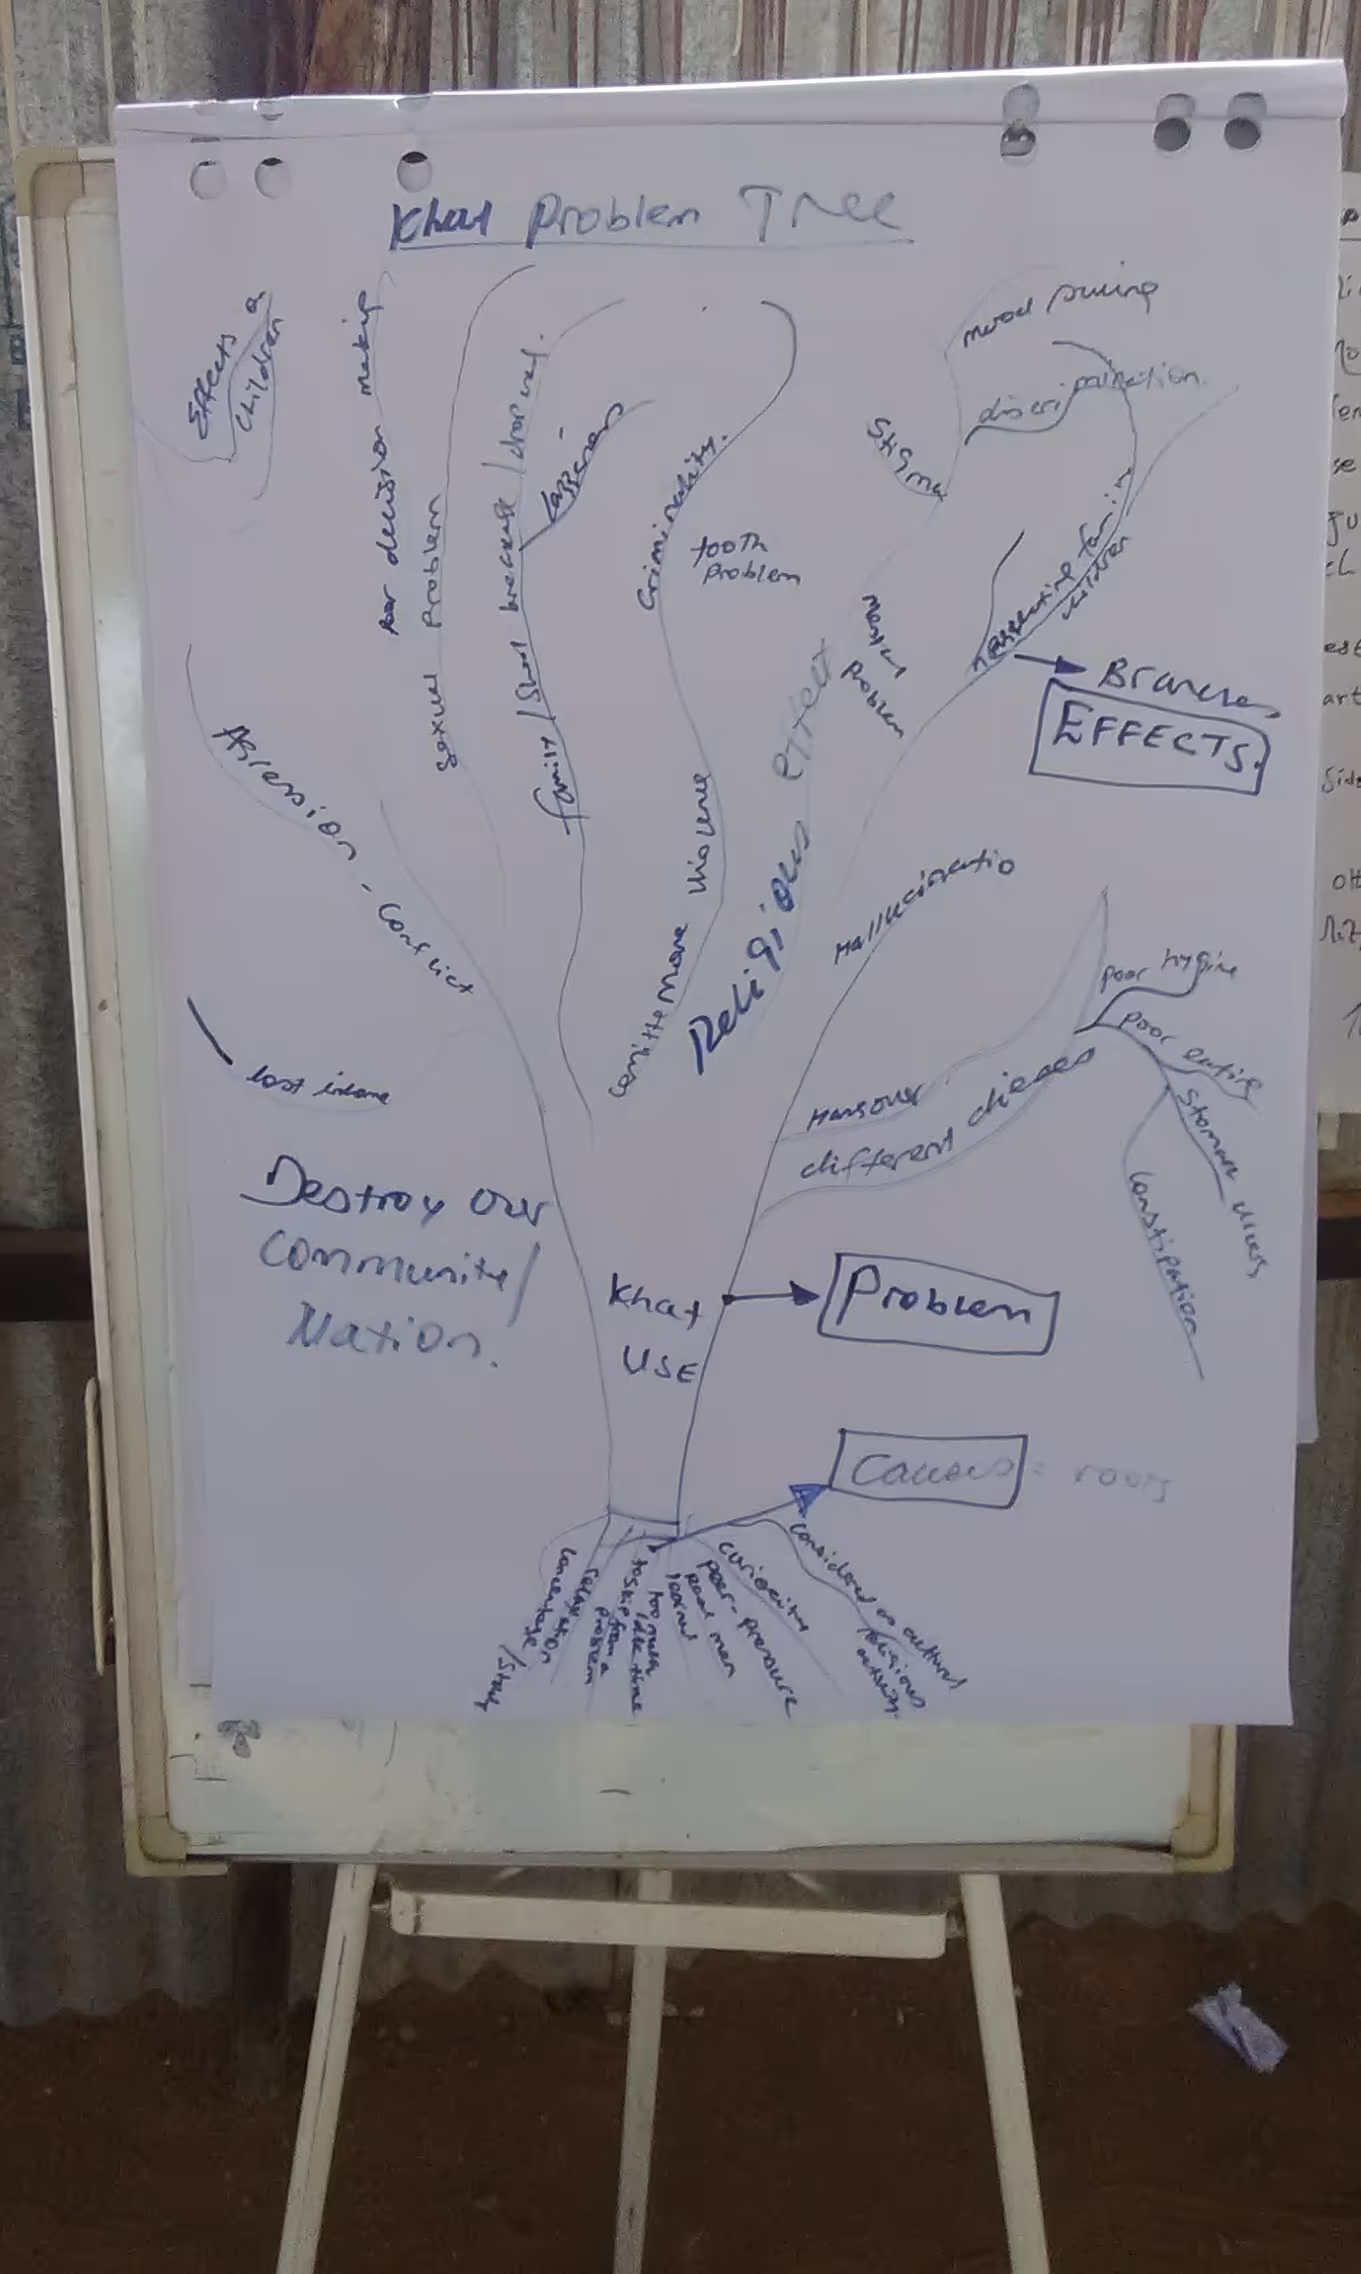 Khat Problem Tree
Effects on
children
Poor decision making
Sexual Problem
family / Short breakage / drop out.
Lazziness
Criminality.
tooth
Problem
Stigma
mood swing
discrimination
neggecting family
children
mental
problem
Branches
EFFECTS.
Agression - conflict
committe more violence
Religious effect
Hallucinatio
lost income
Hangover
different dieases
poor hygine
poor eating
Stomach ulcers
Constipation
Destroy our
Community/
Nation.
Khat
USE
Problem
Causes = roots
concentrate / Study
relaxation
to skip from a
problem
too much
idle time
peer-pressure
curiosity
considered as cultural
religious
activity.